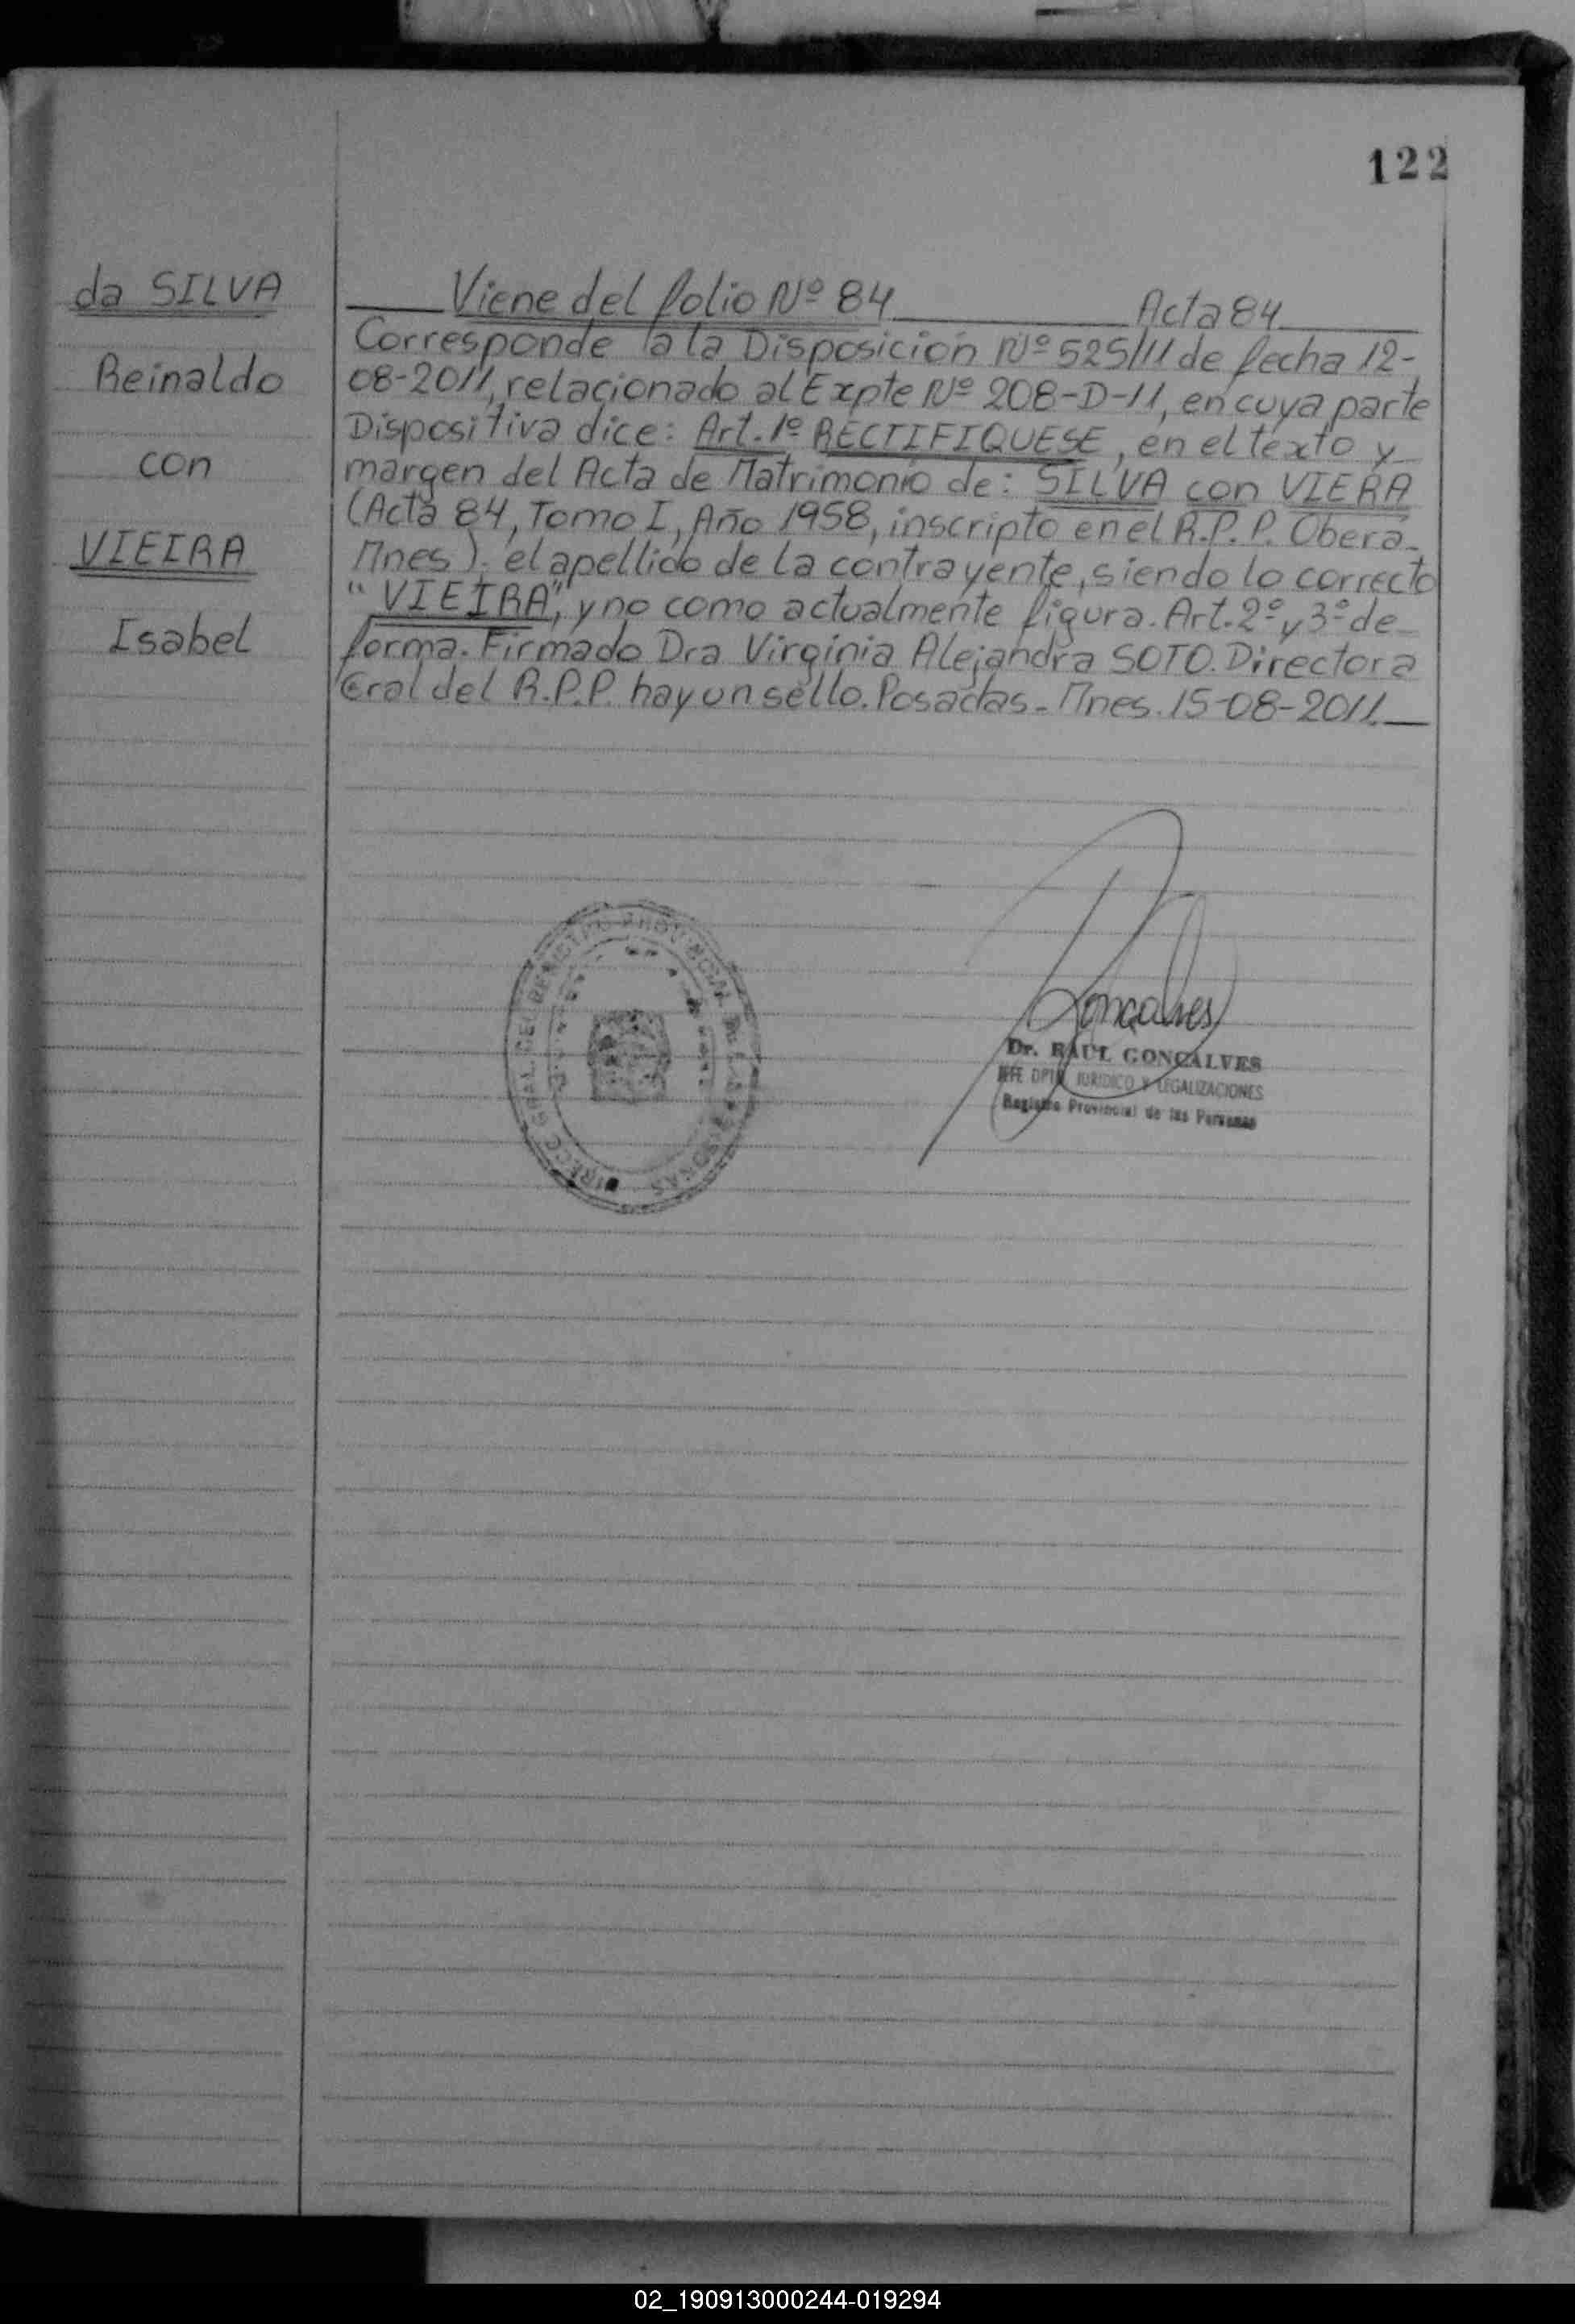 122
da SILVA
Reinaldo
con
VIEIRA
Isabel
Viene del folio Nº 84 Acta 84
Corresponde a la Disposición Nº 525/11 de fecha 12-
08-2011, relacionado al Expte Nº 208-D-11, en cuya parte
Dispositiva dice: Art. 1º RECTIFIQUESE, en el texto y
margen del Acta de Matrimonio de: SILVA con VIERA
(Acta 84, Tomo I, Año 1958, inscripto en el R.P.P. Oberá-
Mnes). el apellido de la contrayente, siendo lo correcto
"VIEIRA", y no como actualmente figura. Art. 2º y 3º de
forma. Firmado Dra Virginia Alejandra SOTO. Directora
Gral del R.P.P. hay un sello. Posadas - Mnes. 15-08-2011.
DIRECC. GRAL. DEL REGISTRO PROVINCIAL PERSONAS
Goncalves
Dr. RAUL GONCALVES
JEFE DPTO. JURIDICO Y LEGALIZACIONES
Registro Provincial de las Personas
02_190913000244-019294